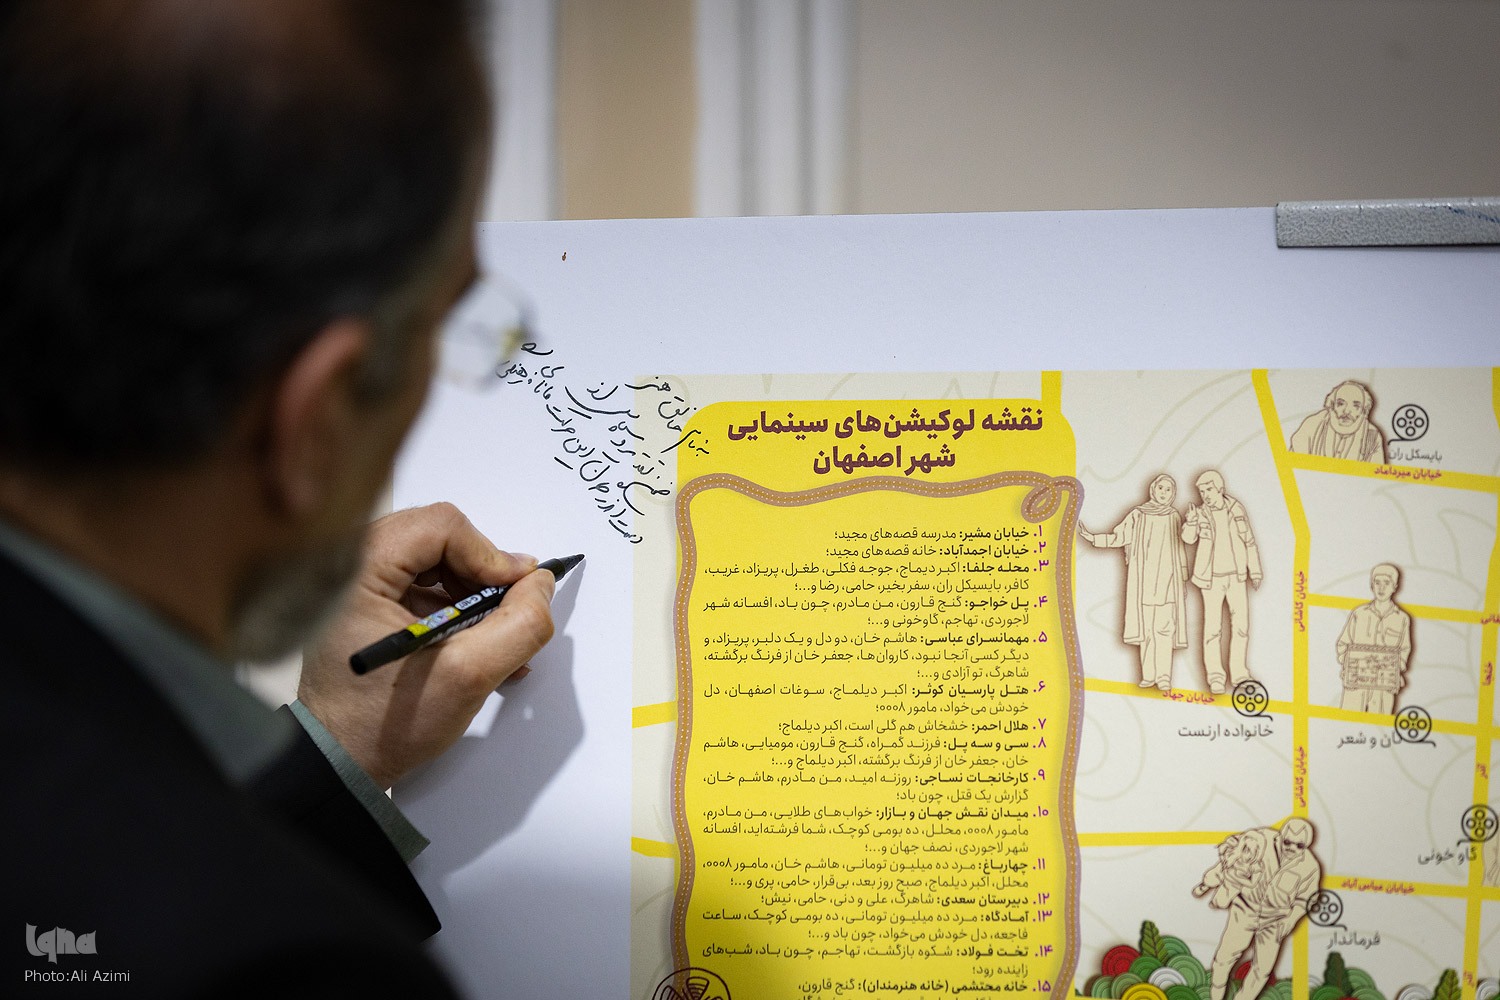 به نام خالق هنر
نقشه لوکیشن‌های سینمایی
شهر اصفهان
۱. خیابان مشیر: مدرسه قصه‌های مجید؛
۲. خیابان احمدآباد: خانه قصه‌های مجید؛
۳. محله جلفا: اکبر دیماج، جوجه فکلی، طغرل، پریزاد، غریب،
کافر، بایسیکل ران، سفر بخیر، حامی، رضا و...؛
۴. پل خواجو: گنج قارون، من مادرم، چون باد، افسانه شهر
لاجوردی، تهاجم، گاوخونی و...؛
۵. مهمانسرای عباسی: هاشم خان، دو دل و یک دلبر، پریزاد، و
دیگر کسی آنجا نبود، کاروان‌ها، جعفر خان از فرنگ برگشته،
شاهرگ، تو آزادی و...؛
۶. هتل پارسیان کوثر: اکبر دیلماج، سوغات اصفهان، دل
خودش می‌خواد، مامور ۰۰۰۸؛
۷. هلال احمر: خشخاش هم گلی است، اکبر دیلماج؛
۸. سی و سه پل: فرزند گمراه، گنج قارون، مومیایی، هاشم
خان، جعفر خان از فرنگ برگشته، اکبر دیلماج و...؛
۹. کارخانجات نساجی: روزنه امید، من مادرم، هاشم خان،
گزارش یک قتل، چون باد؛
۱۰. میدان نقش جهان و بازار: خواب‌های طلایی، من مادرم،
مامور ۰۰۰۸، محلل، ده بومی کوچک، شما فرشته‌اید، افسانه
شهر لاجوردی، نصف جهان و...؛
۱۱. چهارباغ: مرد ده میلیون تومانی، هاشم خان، مامور ۰۰۰۸،
محلل، اکبر دیلماج، صبح روز بعد، بی‌قرار، حامی، پری و...؛
۱۲. دبیرستان سعدی: شاهرگ، علی و دنی، حامی، نیش؛
۱۳. آمادگاه: مرد ده میلیون تومانی، ده بومی کوچک، ساعت
فاجعه، دل خودش می‌خواد، چون باد و...؛
۱۴. تخت فولاد: شکوه بازگشت، تهاجم، چون باد، شب‌های
زاینده رود؛
۱۵. خانه محتشمی (خانه هنرمندان): گنج قارون،
بایسکل ران
خیابان میرداماد
خیابان کاشانی
خیابان جهاد
خانواده ارنست
نان و شعر
خیابان کاشانی
گاو خونی
خیابان عباس آباد
فرماندار
iqna
Photo:Ali Azimi